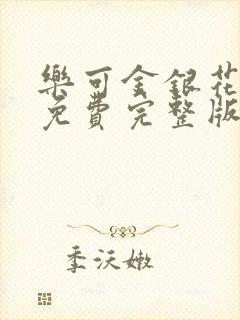 樂可金銀花
免費完整版
季沃嫩